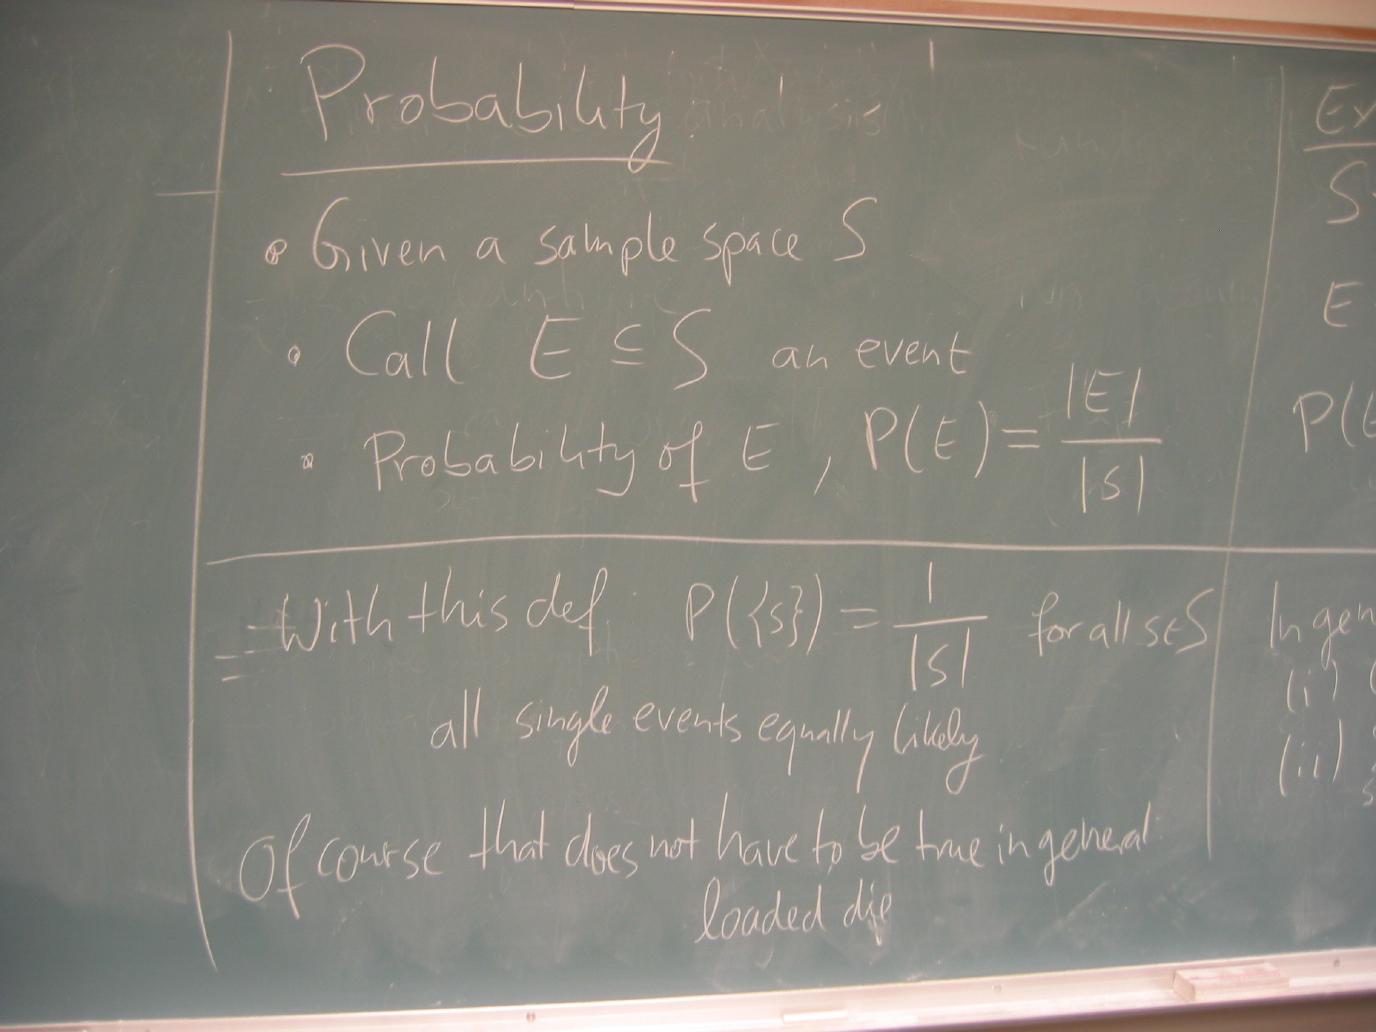 Probability
• Given a sample space S
• Call E ⊆ S an event
• Probability of E, P(E) = |E| / |S|
With this def. P({s}) = 1 / |S| for all s∈S
all single events equally likely
Of course that does not have to be true in general
loaded die
Ex
S
E
P(E
In gen
(i)
(ii)